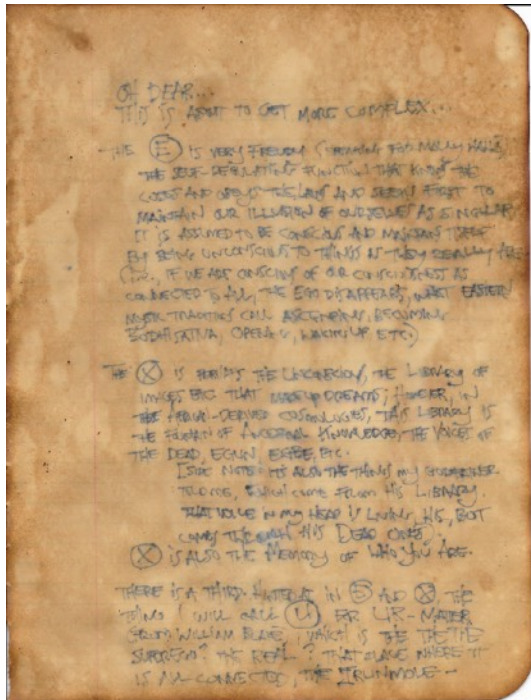 OH DEAR...
THIS IS ABOUT TO GET MORE COMPLEX...
THE (E) IS VERY FREUDY (SPEAKING FORMALLY
THE SELF-REGULATING FUNCTION THAT KNOWS THE
CODES AND OBEYS THE LAWS AND SEEKS FIRST TO
MAINTAIN OUR ILLUSION OF OURSELVES AS SINGULAR
IT IS ASSUMED TO BE CONSCIOUS AND MAINTAINS ITSELF
BY BEING UNCONSCIOUS TO THINGS AS THEY REALLY ARE
IF WE ARE CONSCIOUS OF OUR CONSCIOUSNESS AS
CONNECTED TO ALL, THE EGO DISAPPEARS, WHAT EASTERN
MYSTIC TRADITIONS CALL ASCENDING, BECOMING
BODHISATVA, OPENING, WAKING UP ETC.)
THE (X) IS PERHAPS THE UNCONSCIOUS, THE LIBRARY OF
IMAGES ETC THAT MAKE UP DREAMS; HOWEVER, IN
THE AFRICAN-DERIVED COSMOLOGIES, THIS LIBRARY IS
THE OF ANCESTRAL KNOWLEDGE, THE VOICES OF
THE DEAD, EGUN, ETC.
[SIDE NOTE: IT'S ALSO THE THINGS MY GODFATHER
TOLD ME, WHICH COME FROM HIS LIBRARY.
THAT VOICE IN MY HEAD IS LIVING, HIS, BUT
COMES THROUGH HIS DEAD ONES]
(X) IS ALSO THE MEMORY OF WHO YOU ARE.
THERE IS A THIRD IN (E) AND (X) THE
THING I WILL CALL (U) FOR UR-
WILLIAM BLAKE, WHICH IS THE
THE REAL? THAT PLACE WHERE IT
IS ALL CONNECTED, THE